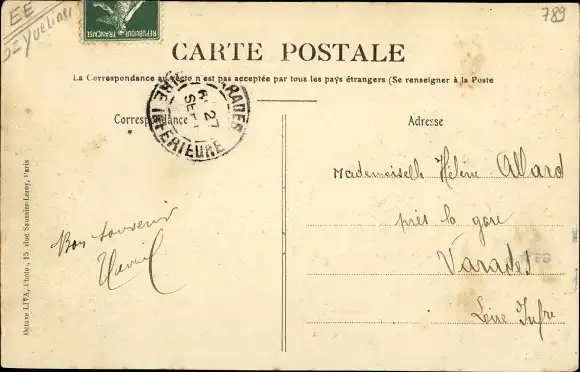 EE
789
Yvelines
REPUBLIQUE FRANÇAISE
CARTE POSTALE
La Correspondance au recto n'est pas acceptée par tous les pays étrangers (Se renseigner à la Poste
VARADES
27
SEPT
LOIRE INFERIEURE
Correspondance
Adresse
Mademoiselle Hélène Allard
près la gare
Varades
Loire Infre
Bon souvenir
Octave LIVA, Photo., 15 rue Saussier-Leroy, Paris